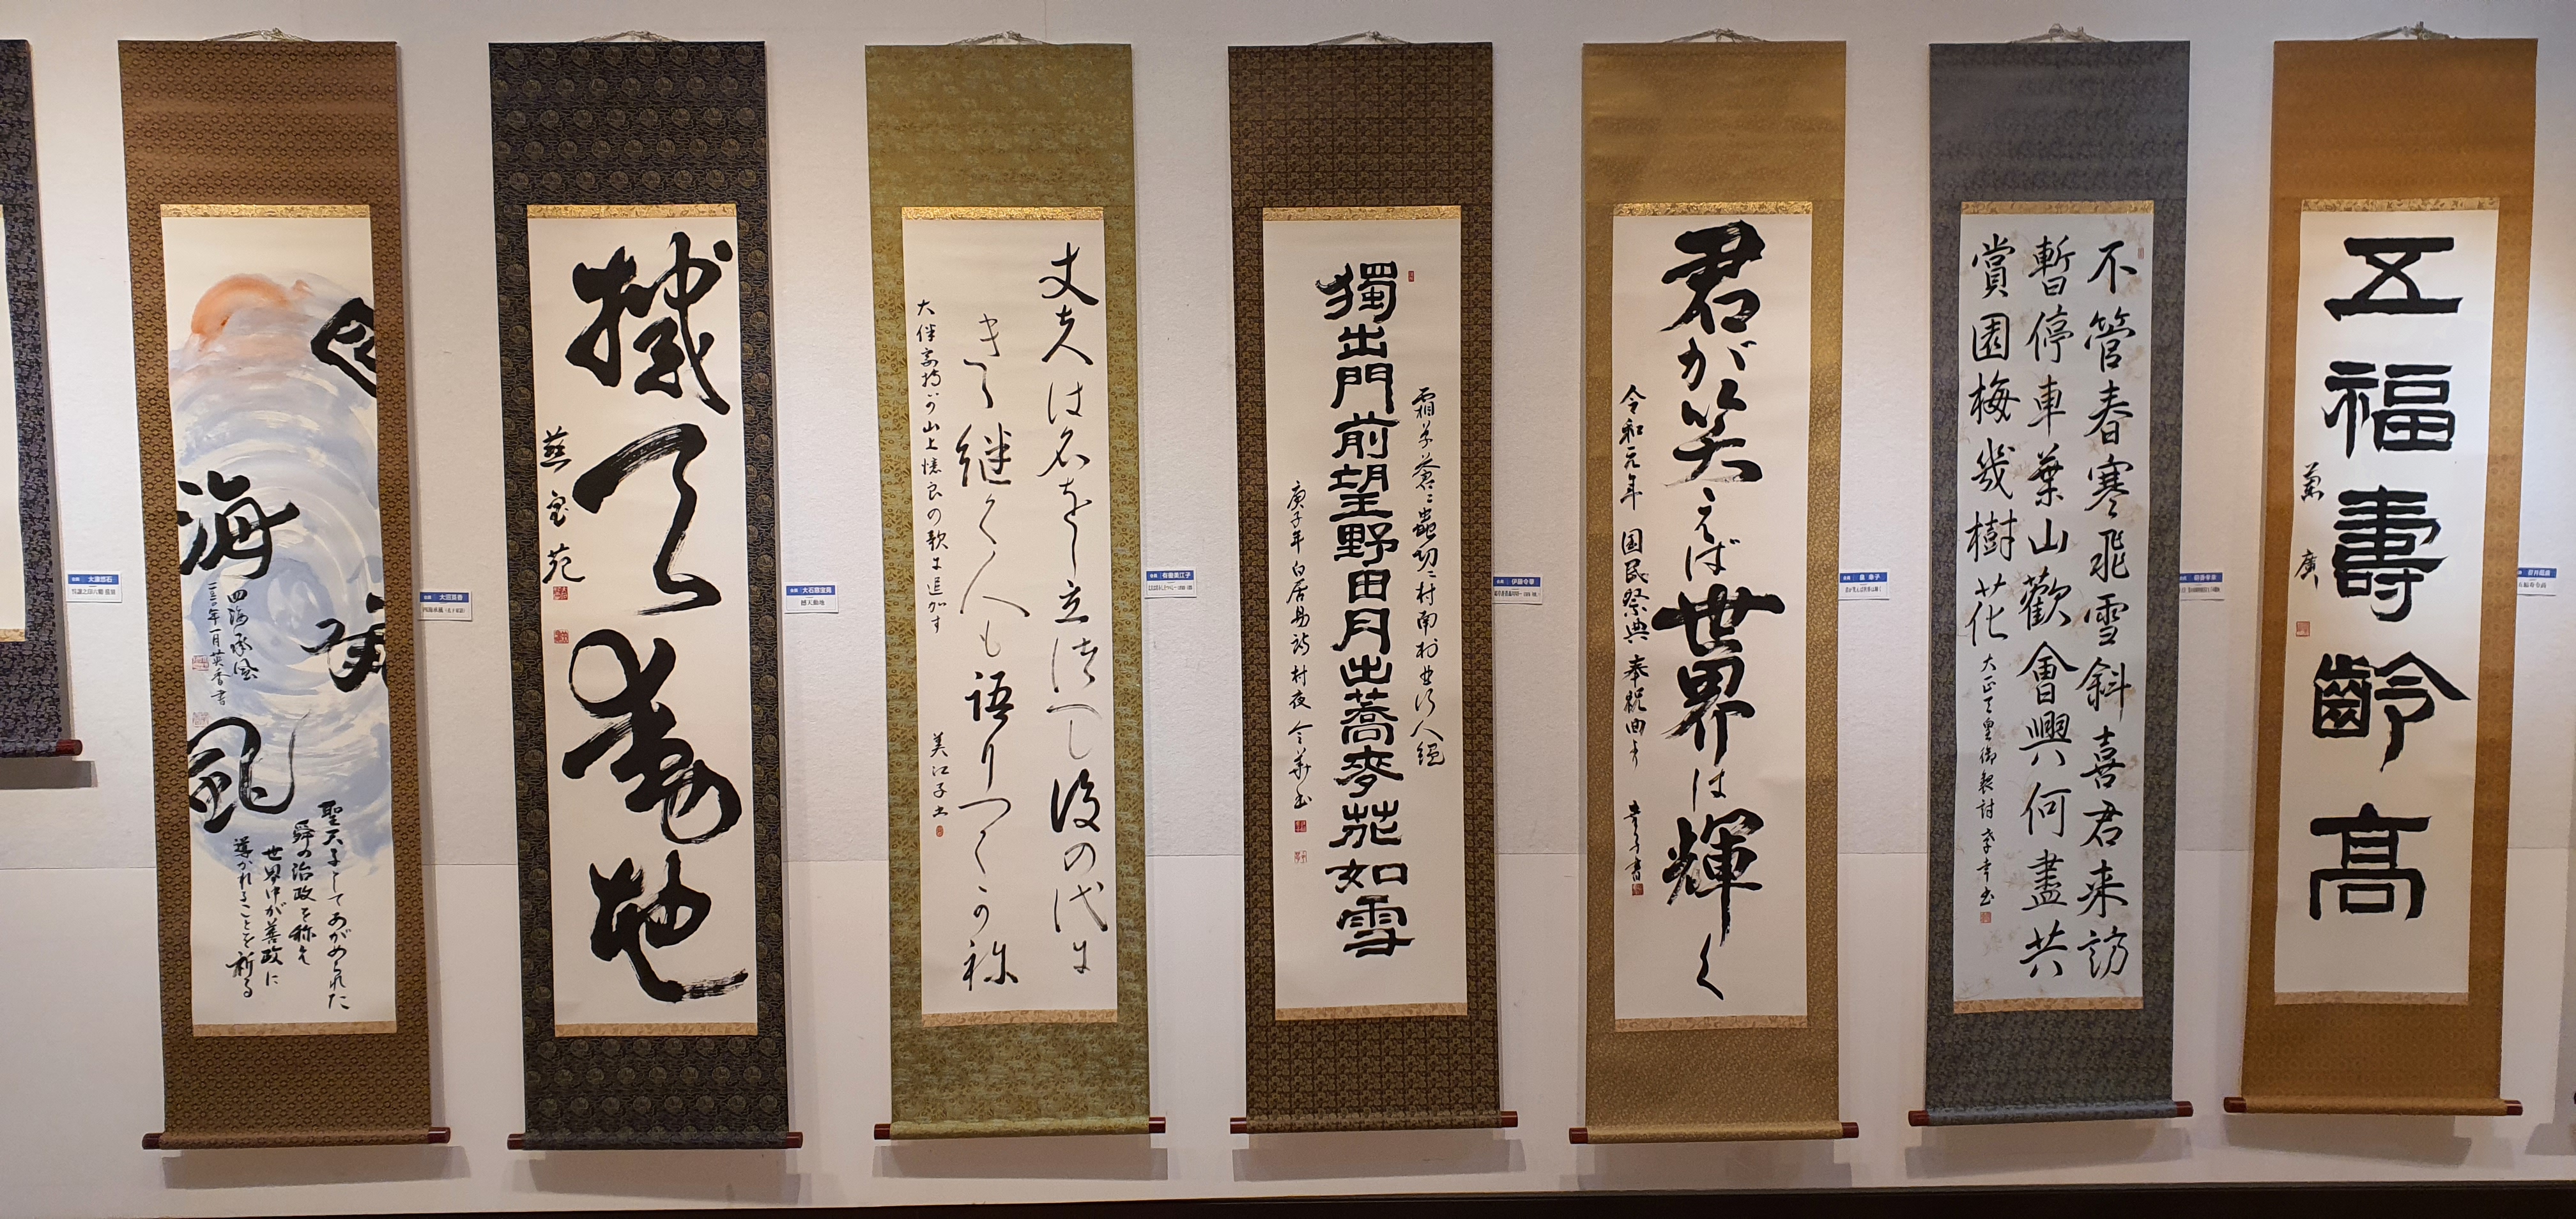 四海承風
四海承風
二〇二〇年一月英香書
聖天子としてあがめられた
舜の治政を称え
世界中が善政に
導かれることを祈る
撼天動地
慈宝苑
撼天動地
丈夫は名をし立つべし後の代に
きき継ぐ人も語りつぐがね
大伴家持が山上憶良の歌に追加す
美江子書
有働美江子
霜草蒼々蟲切々村南村北行人絶
獨出門前望野田月出蕎麥花如雪
庚子年 白居易詩 村夜 令華書
君が笑えば世界は輝く
令和元年 国民祭典 奉祝曲より 幸子書
不管春寒飛雪斜喜君来訪
暫停車葉山歡會興何盡共
賞園梅幾樹花 大正天皇御製詩
五福壽齡高